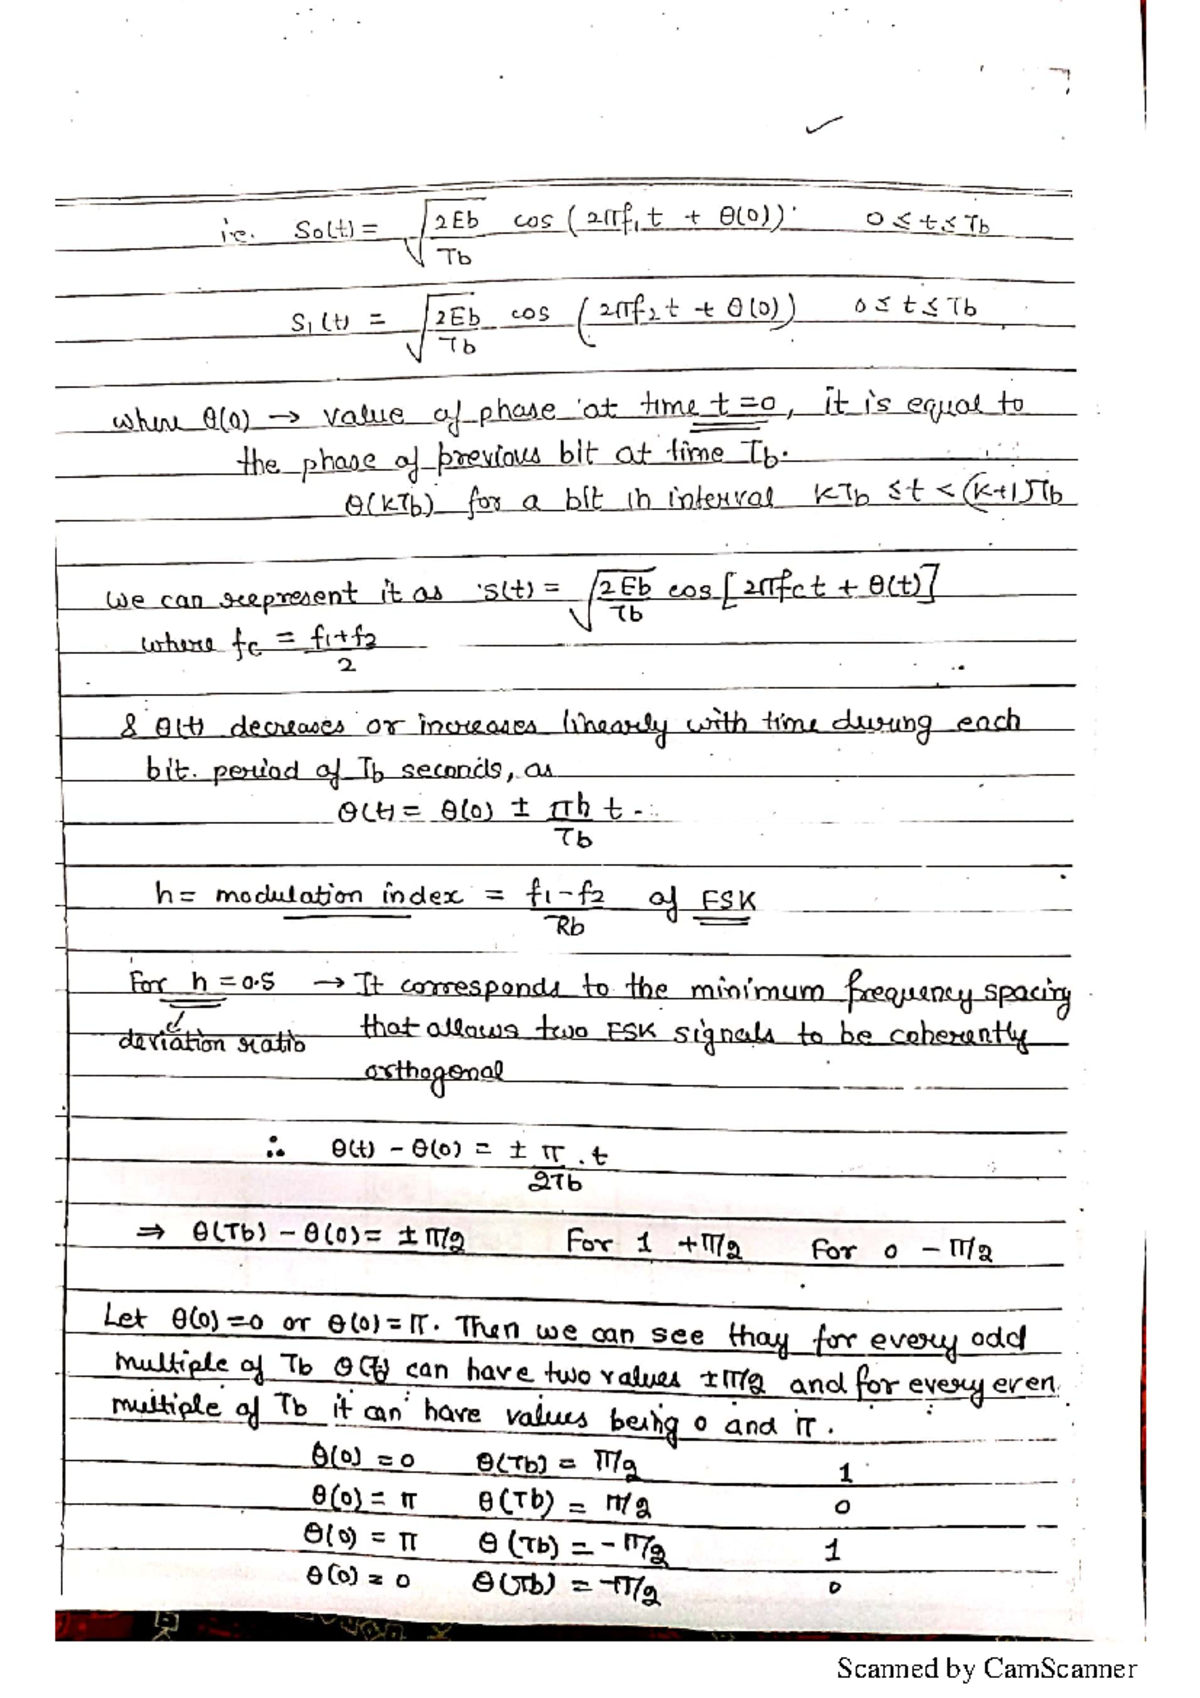 i.e. S0(t) = √(2Eb/Tb) cos (2πf1t + θ(0)) 0 ≤ t ≤ Tb
S1(t) = √(2Eb/Tb) cos (2πf2t + θ(0)) 0 ≤ t ≤ Tb
where θ(0) → value of phase at time t=0, it is equal to
the phase of previous bit at time Tb.
θ(kTb) for a bit in interval kTb ≤ t < (k+1)Tb
we can represent it as s(t) = √(2Eb/Tb) cos [2πfct + θ(t)]
where fc = (f1+f2)/2
& θ(t) decreases or increases linearly with time during each
bit. period of Tb seconds, as
θ(t) = θ(0) ± πh/Tb t.
h = modulation index = (f1-f2)/Rb of FSK
For h = 0.5 → It corresponds to the minimum frequency spacing
deviation ratio that allows two FSK signals to be coherently
orthogonal
∴ θ(t) - θ(0) = ± π/2Tb . t
⇒ θ(Tb) - θ(0) = ± π/2 For 1 + π/2 For 0 - π/2
Let θ(0) = 0 or θ(0) = π. Then we can see thay for every odd
multiple of Tb θ(t) can have two values ± π/2 and for every even
multiple of Tb it can have values being 0 and π.
θ(0) = 0 θ(Tb) = π/2 1
θ(0) = π θ(Tb) = π/2 0
θ(0) = π θ(Tb) = - π/2 1
θ(0) = 0 θ(Tb) = -π/2 0
Scanned by CamScanner